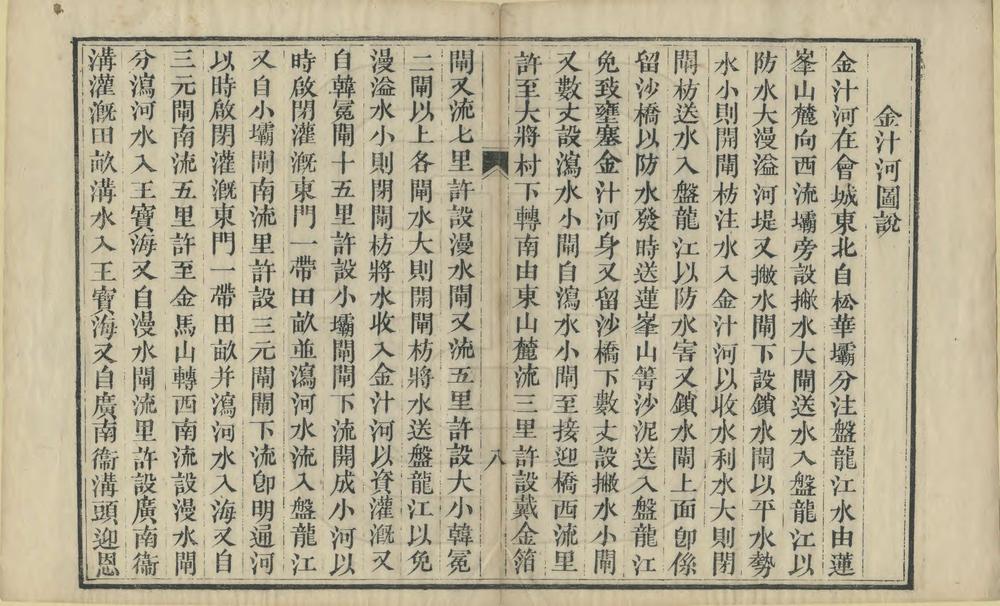 金汁河圖說
金汁河在會城東北自松華壩分注盤龍江水由蓮
峯山麓向西流壩旁設撇水大閘送水入盤龍江以
防水大漫溢河堤又撇水閘下設鎖水閘以平水勢
水小則開閘枋注水入金汁河以收水利水大則閉
閘枋送水入盤龍江以防水害又鎖水閘上面卽係
留沙橋以防水發時送蓮峯山箐沙泥送入盤龍江
免致壅塞金汁河身又留沙橋下數丈設撇水小閘
又數丈設瀉水小閘自瀉水小閘至接迎橋西流里
許至大將村下轉南由東山麓流三里許設戴金箔
八
閘又流七里許設漫水閘又流五里許設大小韓冕
二閘以上各閘水大則開閘枋將水送盤龍江以免
漫溢水小則閉閘枋將水收入金汁河以資灌漑又
自韓冕閘十五里許設小壩閘閘下流開成小河以
時啟閉灌漑東門一帶田畝並瀉河水流入盤龍江
又自小壩閘南流里許設三元閘閘下流卽明通河
以時啟閉灌漑東門一帶田畝并瀉河水入海又自
三元閘南流五里許至金馬山轉西南流設漫水閘
分瀉河水入王寶海又自漫水閘流里許設廣南衞
溝灌漑田畝溝水入王寶海又自廣南衞溝頭迎恩